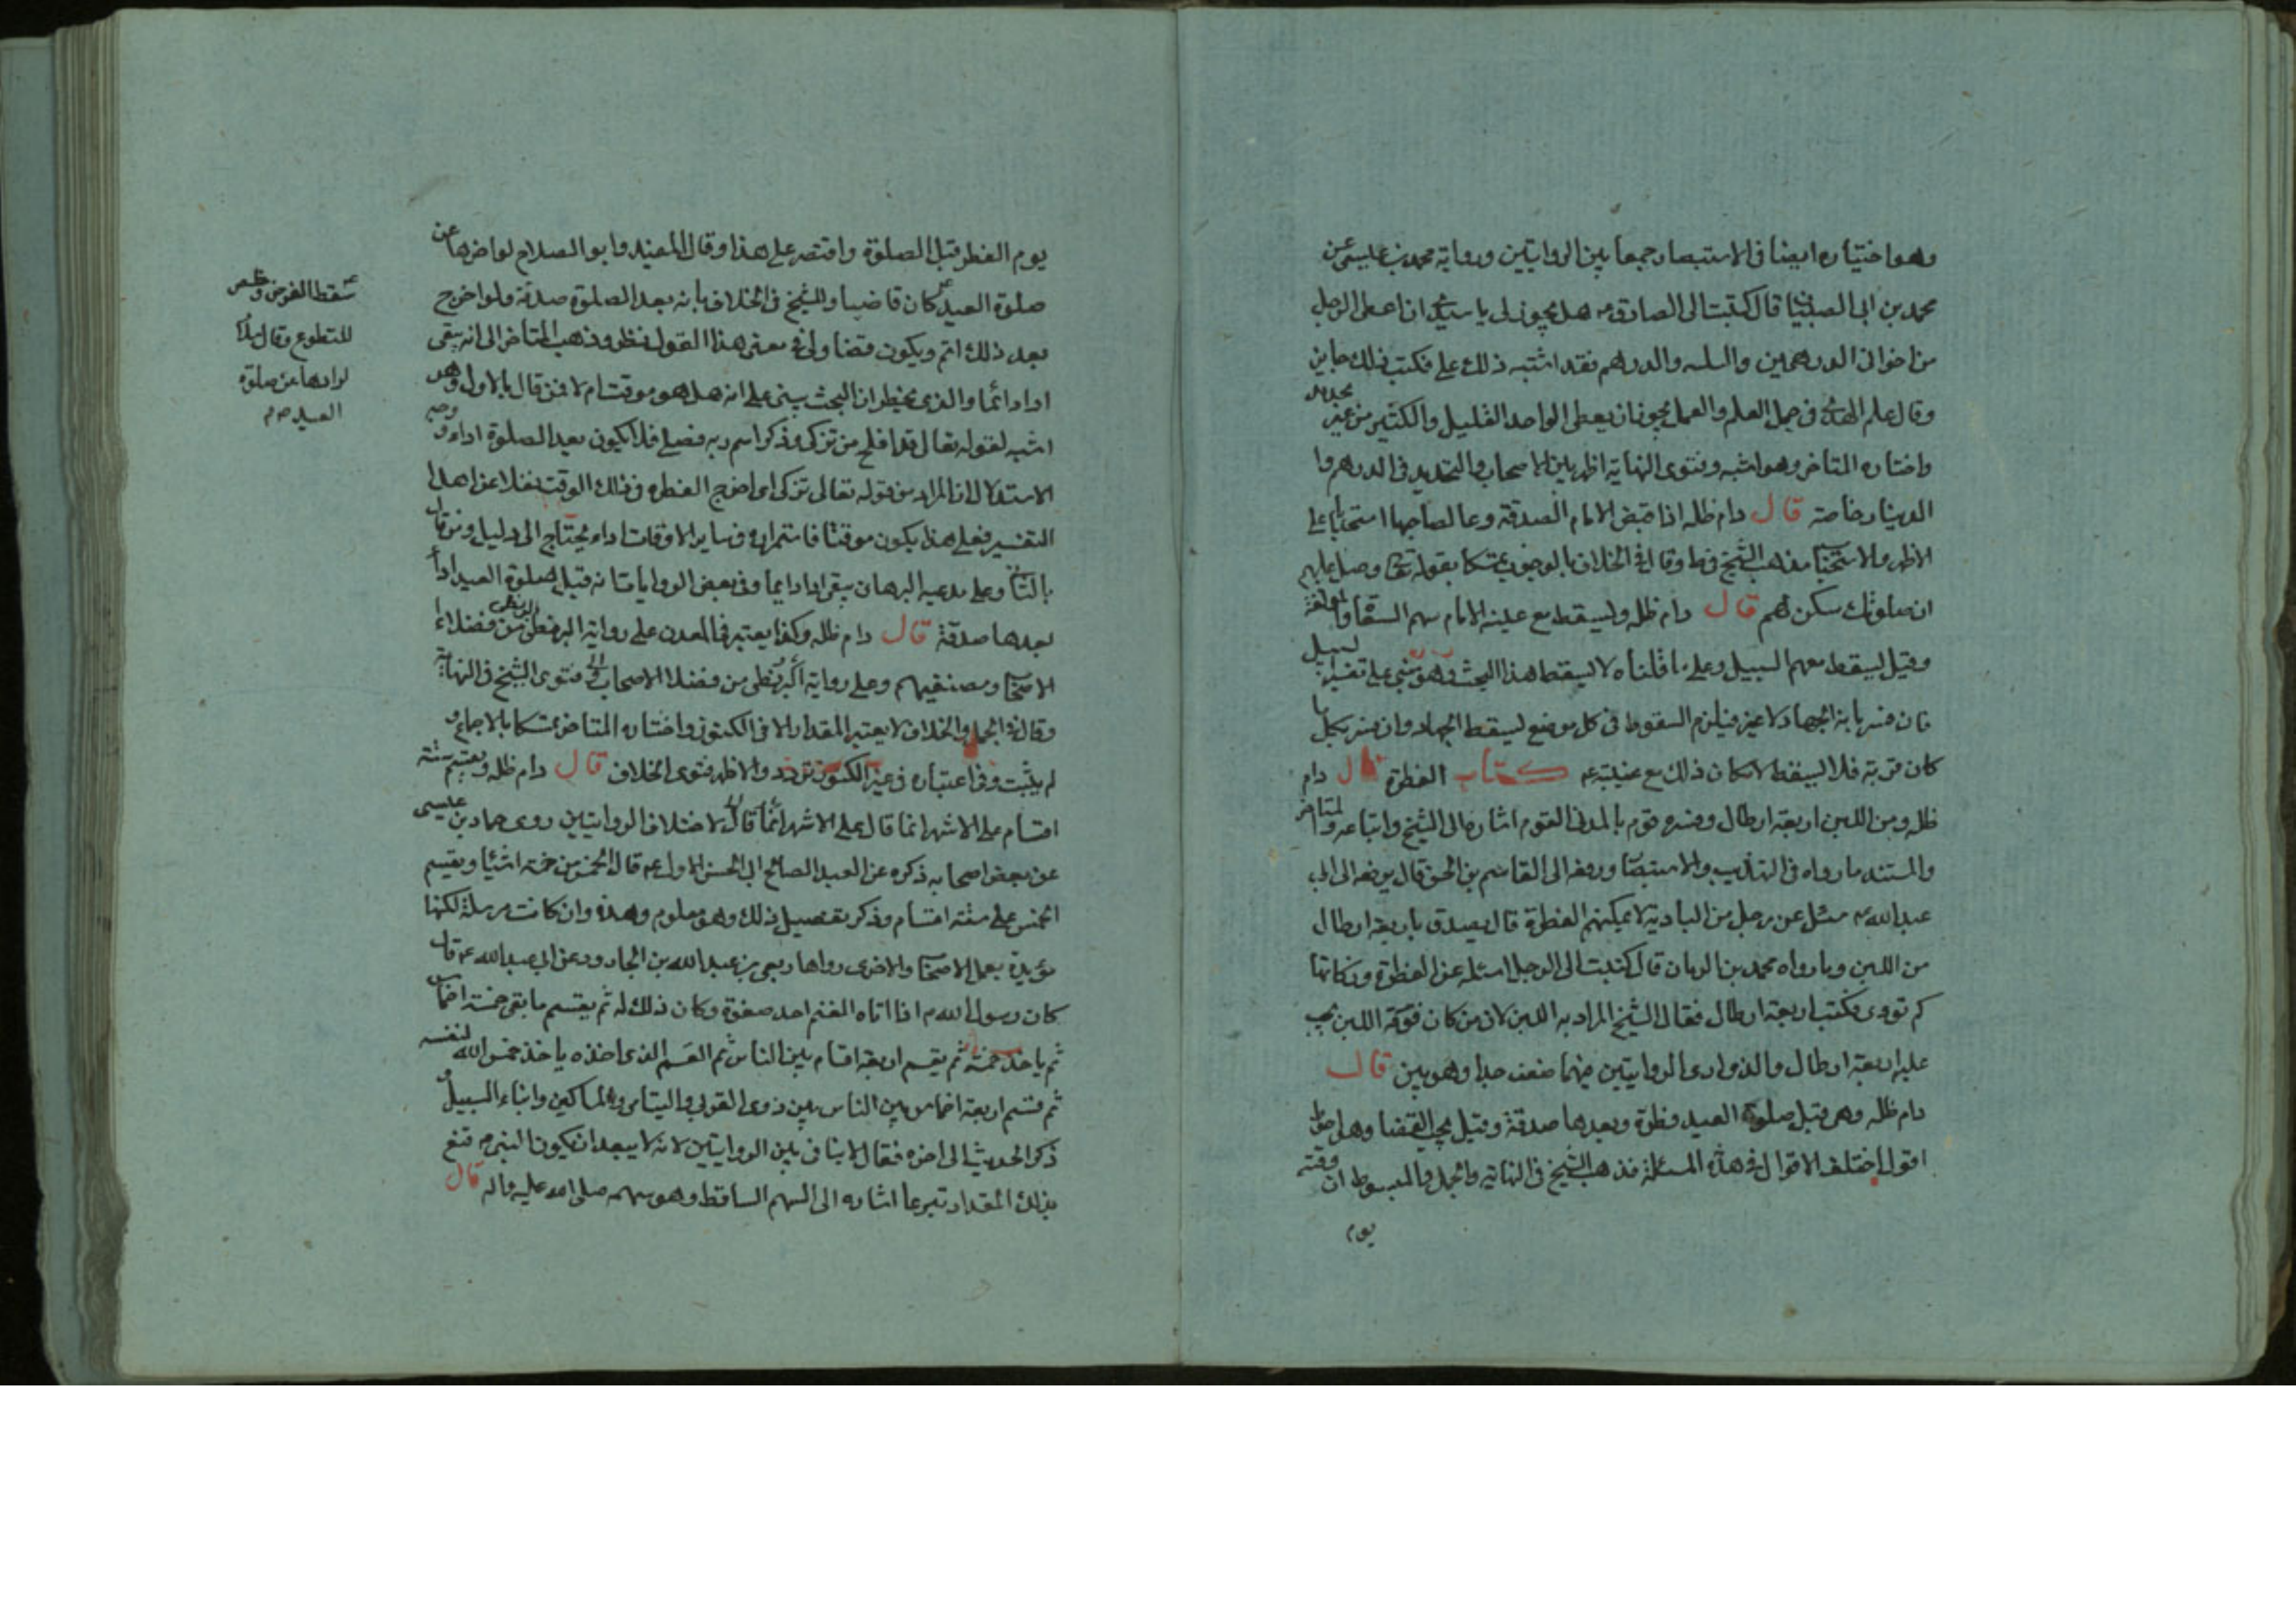 وهو اختياره ايضا فى الاستبصار جمعا بين الروايتين ورواية محمد بن عيسى عن
محمد بن ابى الصهبان قال كتبت الى الصادق ع هل يجوز لى يا سيدى ان اعطى الرجل
من اخوانى الدرهمين والثلثه والدراهم فقد اشتبه ذلك على فكتب ذلك جايز
وقال علم الهدى فى جمل العلم والعمل يجوز ان يعطى الواحد القليل والكثير من غير تحديد
واختاره المتاخر وهو اشبه وفتوى النهاية اظهر بين الاصحاب والتحديد فى الدرهم وا
الدينار خاصة قال دام ظله اذا قبض الامام الصدقة دعا لصاحبها استحبابا على
الاظهر والاستحباب مذهب الشيخ فى ط وقال فى الخلاف بالوجوب تمسكا بقوله تعالى وصل عليهم
ان صلوتك سكن لهم قال دام ظله ويسقط مع غيبة الامام سهم السعاة والمؤلفة
وقيل يسقط سهم السبيل وعلى ما قلناه لا يسقط هذا البحث وهو مبنى على تفسير السبيل
فان فسر بانه الجهاد لا غير فيلزم السقوط فى كل موضع يسقط الجهاد وان فسر بكل ما
كان قربة فلا يسقط لامكان ذلك مع غيبته ع كتاب الفطرة قال دام
ظله ومن اللبن اربعة ارطال وفسره قوم بالمدنى القوم اشارة الى الشيخ واتباعه والمتاخر
والمستند ما رواه فى التهذيب والاستبصار ورفعه الى القاسم بن الحسن قال يرفعه الى ابى
عبد الله ع سئل عن رجل من البادية لا يمكنهم الفطرة قال يصدق باربعة ارطال
من اللبن وما رواه محمد بن الريان قال كتبت الى الرجل اسئله عن الفطرة وزكاتها
كم تودى فكتب اربعة ارطال فقال الشيخ المراد به اللبن لان من كان قوته اللبن يجب
عليه اربعة ارطال والذى ارى الروايتين فيهما ضعف جدا وهو بين قال
دام ظله وهى قبل صلوة العيد فطرة وبعدها صدقة وقيل يجب القضا وهل احوط
اقول اختلف الاقوال فى هذه المسئلة فذهب الشيخ فى النهاية والجمل والمبسوط ان وقته
يوم
يوم الفطر قبل الصلوة واقتصر على هذا وقال المفيد وابو الصلاح لو اخرها عن
صلوة العيد كان قاضيا وللشيخ فى الخلاف بانه بعد الصلوة صدقة ولو اخرج
بعد ذلك اثم ويكون قضا ولى فى معنى هذا القول نظر وذهب المتاخر الى انه يبقى
ادا دائما والذى يخطر ان البحث يبنى على انه هل هو موقت ام لا فمن قال بالاول وهو
اشبه لقوله تعالى قد افلح من تزكى وذكر اسم ربه فصلى فلا يكون بعد الصلوة اداء ووجه
الاستدلال ان المراد من قوله تعالى تزكى اى اخرج الفطرة فى ذلك الوقت نقلا عن اهل
التفسير فعلى هذا يكون موقتا فاستمراره فى ساير الاوقات اداء يحتاج الى دليل ومن قال
بالثانى وعلى مدعيه البرهان يبقى ادا دايما وفى بعض الروايات انه قبل صلوة العيد ادا
بعدها صدقة قال دام ظله وكذا يعتبر فى المعدن على رواية البزنطى من فضلاء
الاصحاب ومصنفيهم وعلى رواية البزنطى من فضلا الاصحاب فتوى الشيخ فى النهاية
وقال فى الجمل والخلاف لا يعتبر المقدار الا فى الكنوز واختاره المتاخر تمسكا بالاجماع و
لم يثبت وفى اعتباره فى غير الكنوز تردد والاظهر فتوى الخلاف قال دام ظله ويقسم ستة
اقسام على الاشهر انما قال على الاشهر لاختلاف الروايتين روى حماد بن عيسى
عن بعض اصحابه ذكره عن العبد الصالح ابى الحسن الاول ع قال الخمس من خمسة اشيا ويقسم
الخمس على ستة اقسام وذكر تفصيل ذلك وهو معلوم وهذه وان كانت مرسلة لكنها
مؤيدة بعمل الاصحاب والاخرى رواها ربعى بن عبد الله بن الجارود عن ابى عبد الله ع قال
كان رسول الله ص اذا اتاه المغنم اخذ صفوة وكان ذلك له ثم يقسم ما بقى خمسة اخماس
ثم ياخذ خمسه ثم يقسم اربعة اقسام بين الناس ثم القسم الذى اخذه ياخذ خمس الله لنفسه
ثم قسم اربعة اخماس بين الناس بين ذوى القربى واليتامى والمساكين وابناء السبيل و
ذكر الحديث الى اخره فقال لا تنافى بين الروايتين لانه لا يبعد ان يكون النبى ص قنع
بذلك المقدار تبرعا اشاره الى السهم الساقط وهو سهمه صلى الله عليه واله قال
سقط الفرض
للتطوع وقال
لو اداها عن صلوة
العيد